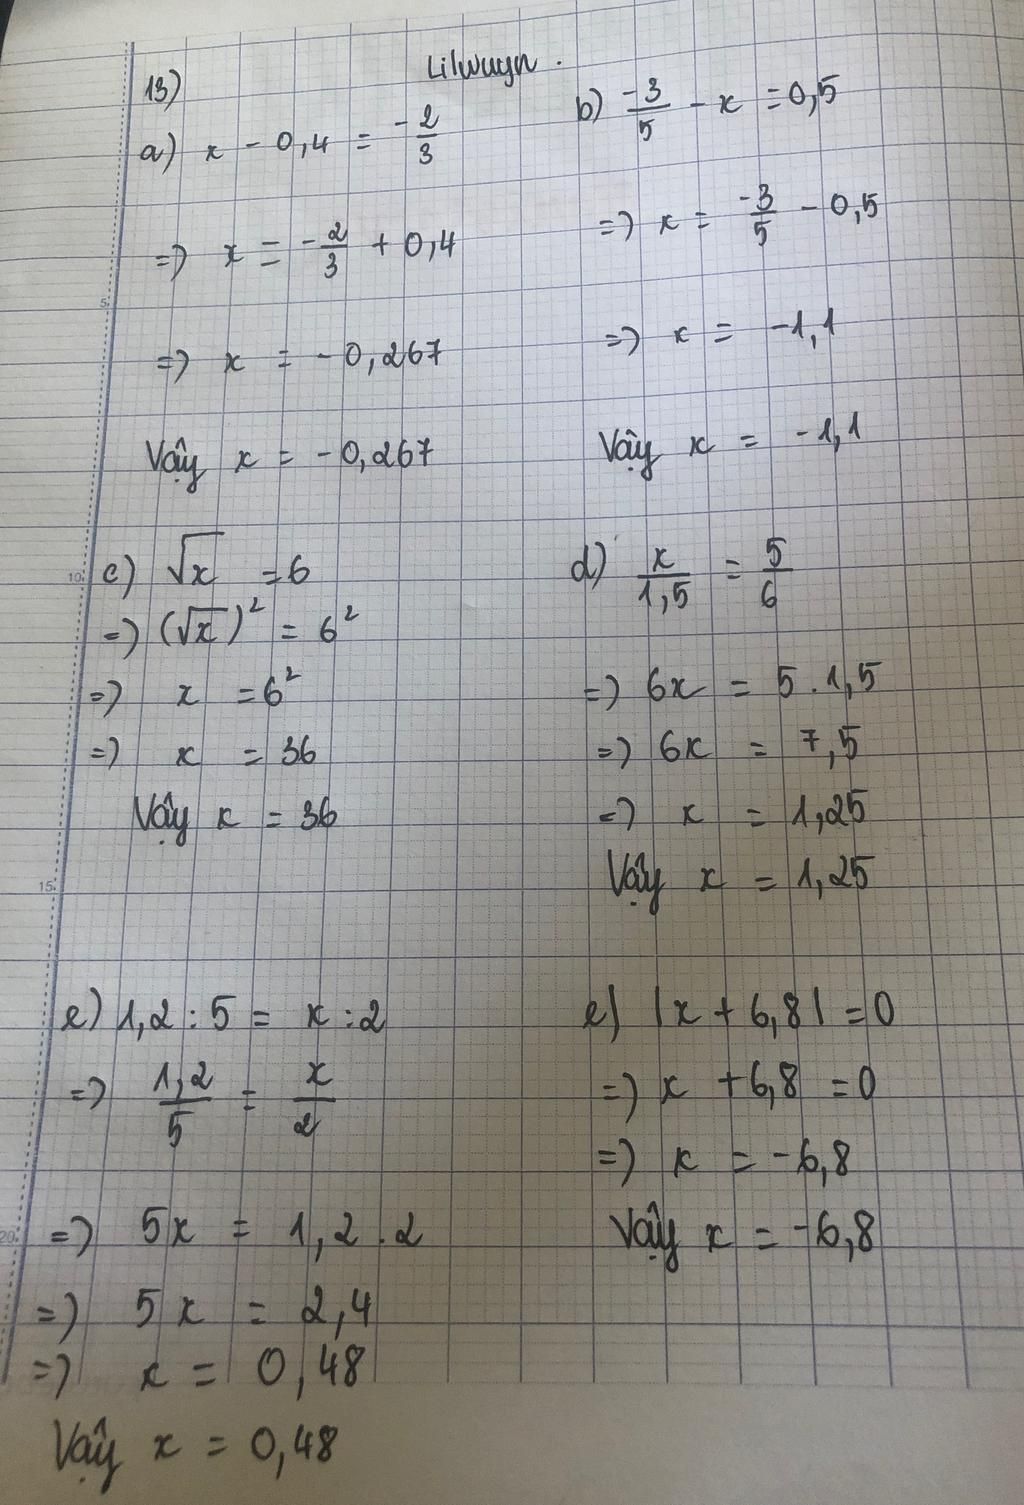 Lilwuyn.
13)
a) x - 0,4 = -2/3
=> x = -2/3 + 0,4
=> x = -0,267
Vậy x = -0,267
b) -3/5 - x = 0,5
=> x = -3/5 - 0,5
=> x = -1,1
Vậy x = -1,1
c) √x = 6
=> (√x)² = 6²
=> x = 6²
=> x = 36
Vậy x = 36
d) x/1,5 = 5/6
=> 6x = 5.1,5
=> 6x = 7,5
=> x = 1,25
Vậy x = 1,25
e) 1,2 : 5 = x : 2
=> 1,2/5 = x/2
=> 5x = 1,2.2
=> 5x = 2,4
=> x = 0,48
Vậy x = 0,48
e) |x + 6,8| = 0
=> x + 6,8 = 0
=> x = -6,8
Vậy x = -6,8
5.
10.
15.
20.